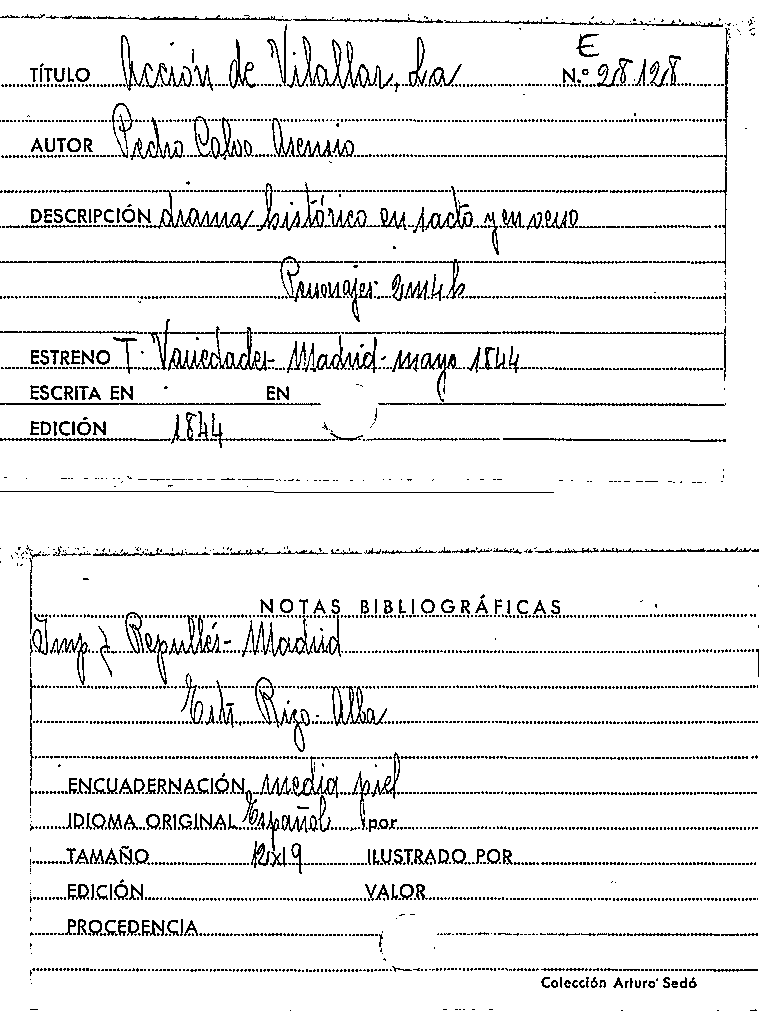 E
TÍTULO Acción de Vilallar, La N.º 28128
AUTOR Pedro Calvo Asensio
DESCRIPCIÓN drama histórico en 1 acto y en verso
Personajes: 2m 4h
ESTRENO T. Variedades - Madrid - mayo 1844
ESCRITA EN EN
EDICIÓN 1844
NOTAS BIBLIOGRÁFICAS
Imp. J. Repullés - Madrid
Edit. Rizo - Alba
ENCUADERNACIÓN media piel
IDIOMA ORIGINAL Español por
TAMAÑO 12x19 ILUSTRADO POR
EDICIÓN VALOR
PROCEDENCIA
Colección Arturo Sedó